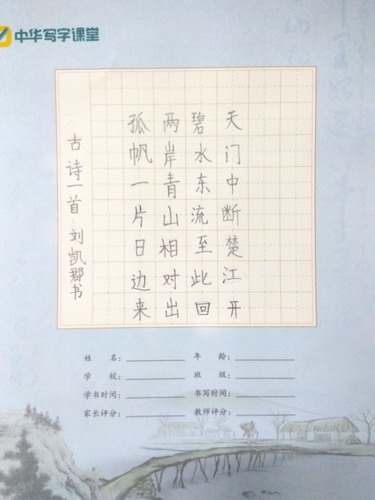 中华写字课堂
天门中断楚江开
碧水东流至此回
两岸青山相对出
孤帆一片日边来
古诗一首 刘凯郡书
姓 名： 年 龄：
学 校： 班 级：
学书时间： 书写时间：
家长评分： 教师评分：